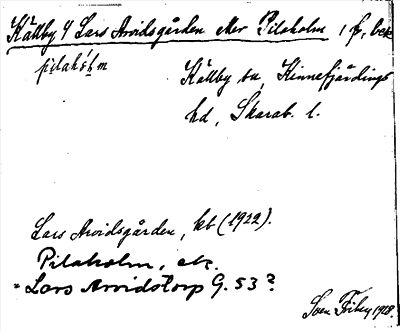 Källby 4 Lars Arvidsgården eller Pilaholm, f,
pilahòm
Källby sn, Kinnefjärdings
hd, Skarab. l.
Lars Arvidsgården, kb (1922).
Pilaholm, ek.
= Lars Arvidstorp G. 53?
Sven Fribey 1928.